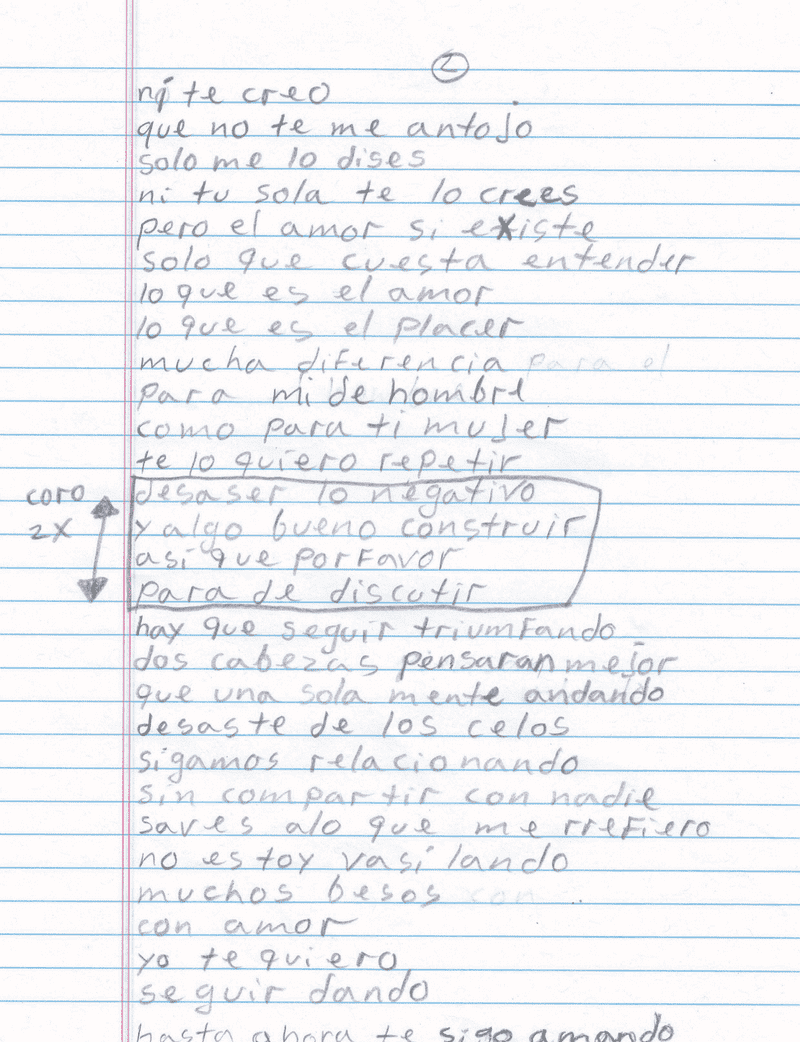 2
ni te creo
que no te me antojo
solo me lo dises
ni tu sola te lo crees
pero el amor si existe
solo que cuesta entender
lo que es el amor
lo que es el placer
mucha diferencia para el
para mi de hombre
como para ti mujer
te lo quiero repetir
coro
2X
desaser lo negativo
y algo bueno construir
así que porfavor
para de discutir
hay que seguir triumfando
dos cabezas pensaran mejor
que una sola mente andando
desaste de los celos
sigamos relacionando
sin compartir con nadie
saves alo que me rrefiero
no estoy vasilando
muchos besos con
con amor
yo te quiero
seguir dando
hasta ahora te sigo amando